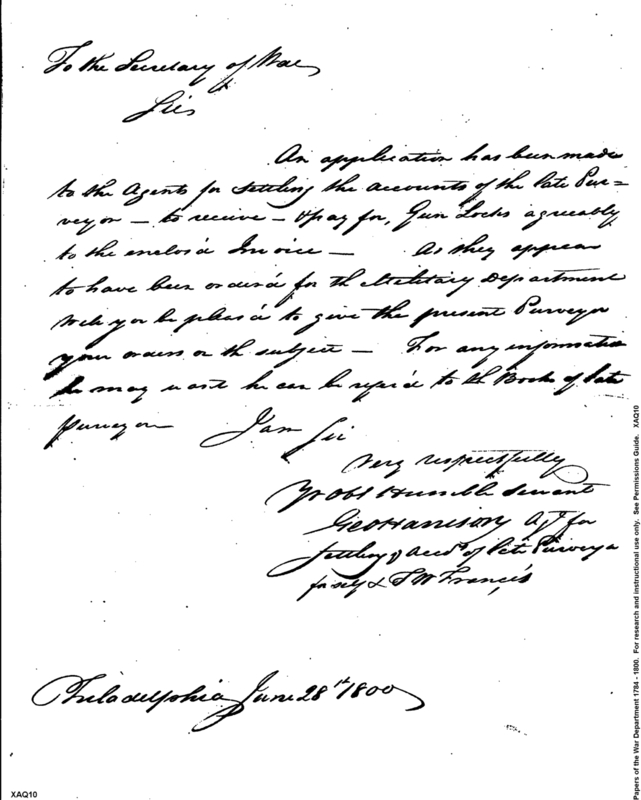 To the Secretary of War
Sir
An application has been made
to the Agents for settling the accounts of the late Pur=
veyor — to receive — & pay for, Gun Locks agreeably
to the enclos'd Invoice — As they appear
to have been order'd for the Military Department
will you be pleas'd to give the present Purveyor
your orders on the subject — For any information
he may want he can be refer'd to the Books of late
purveyor I am Sir
very respectfully
Yr Obt Humble Servant
Geo Harrison Agt for
settling Accts of late Purveyor
for self & T W Francis
Philadelphia June 28th 1800
XAQ10
Papers of the War Department 1784 - 1800. For research and instructional use only. See Permissions Guide. XAQ10